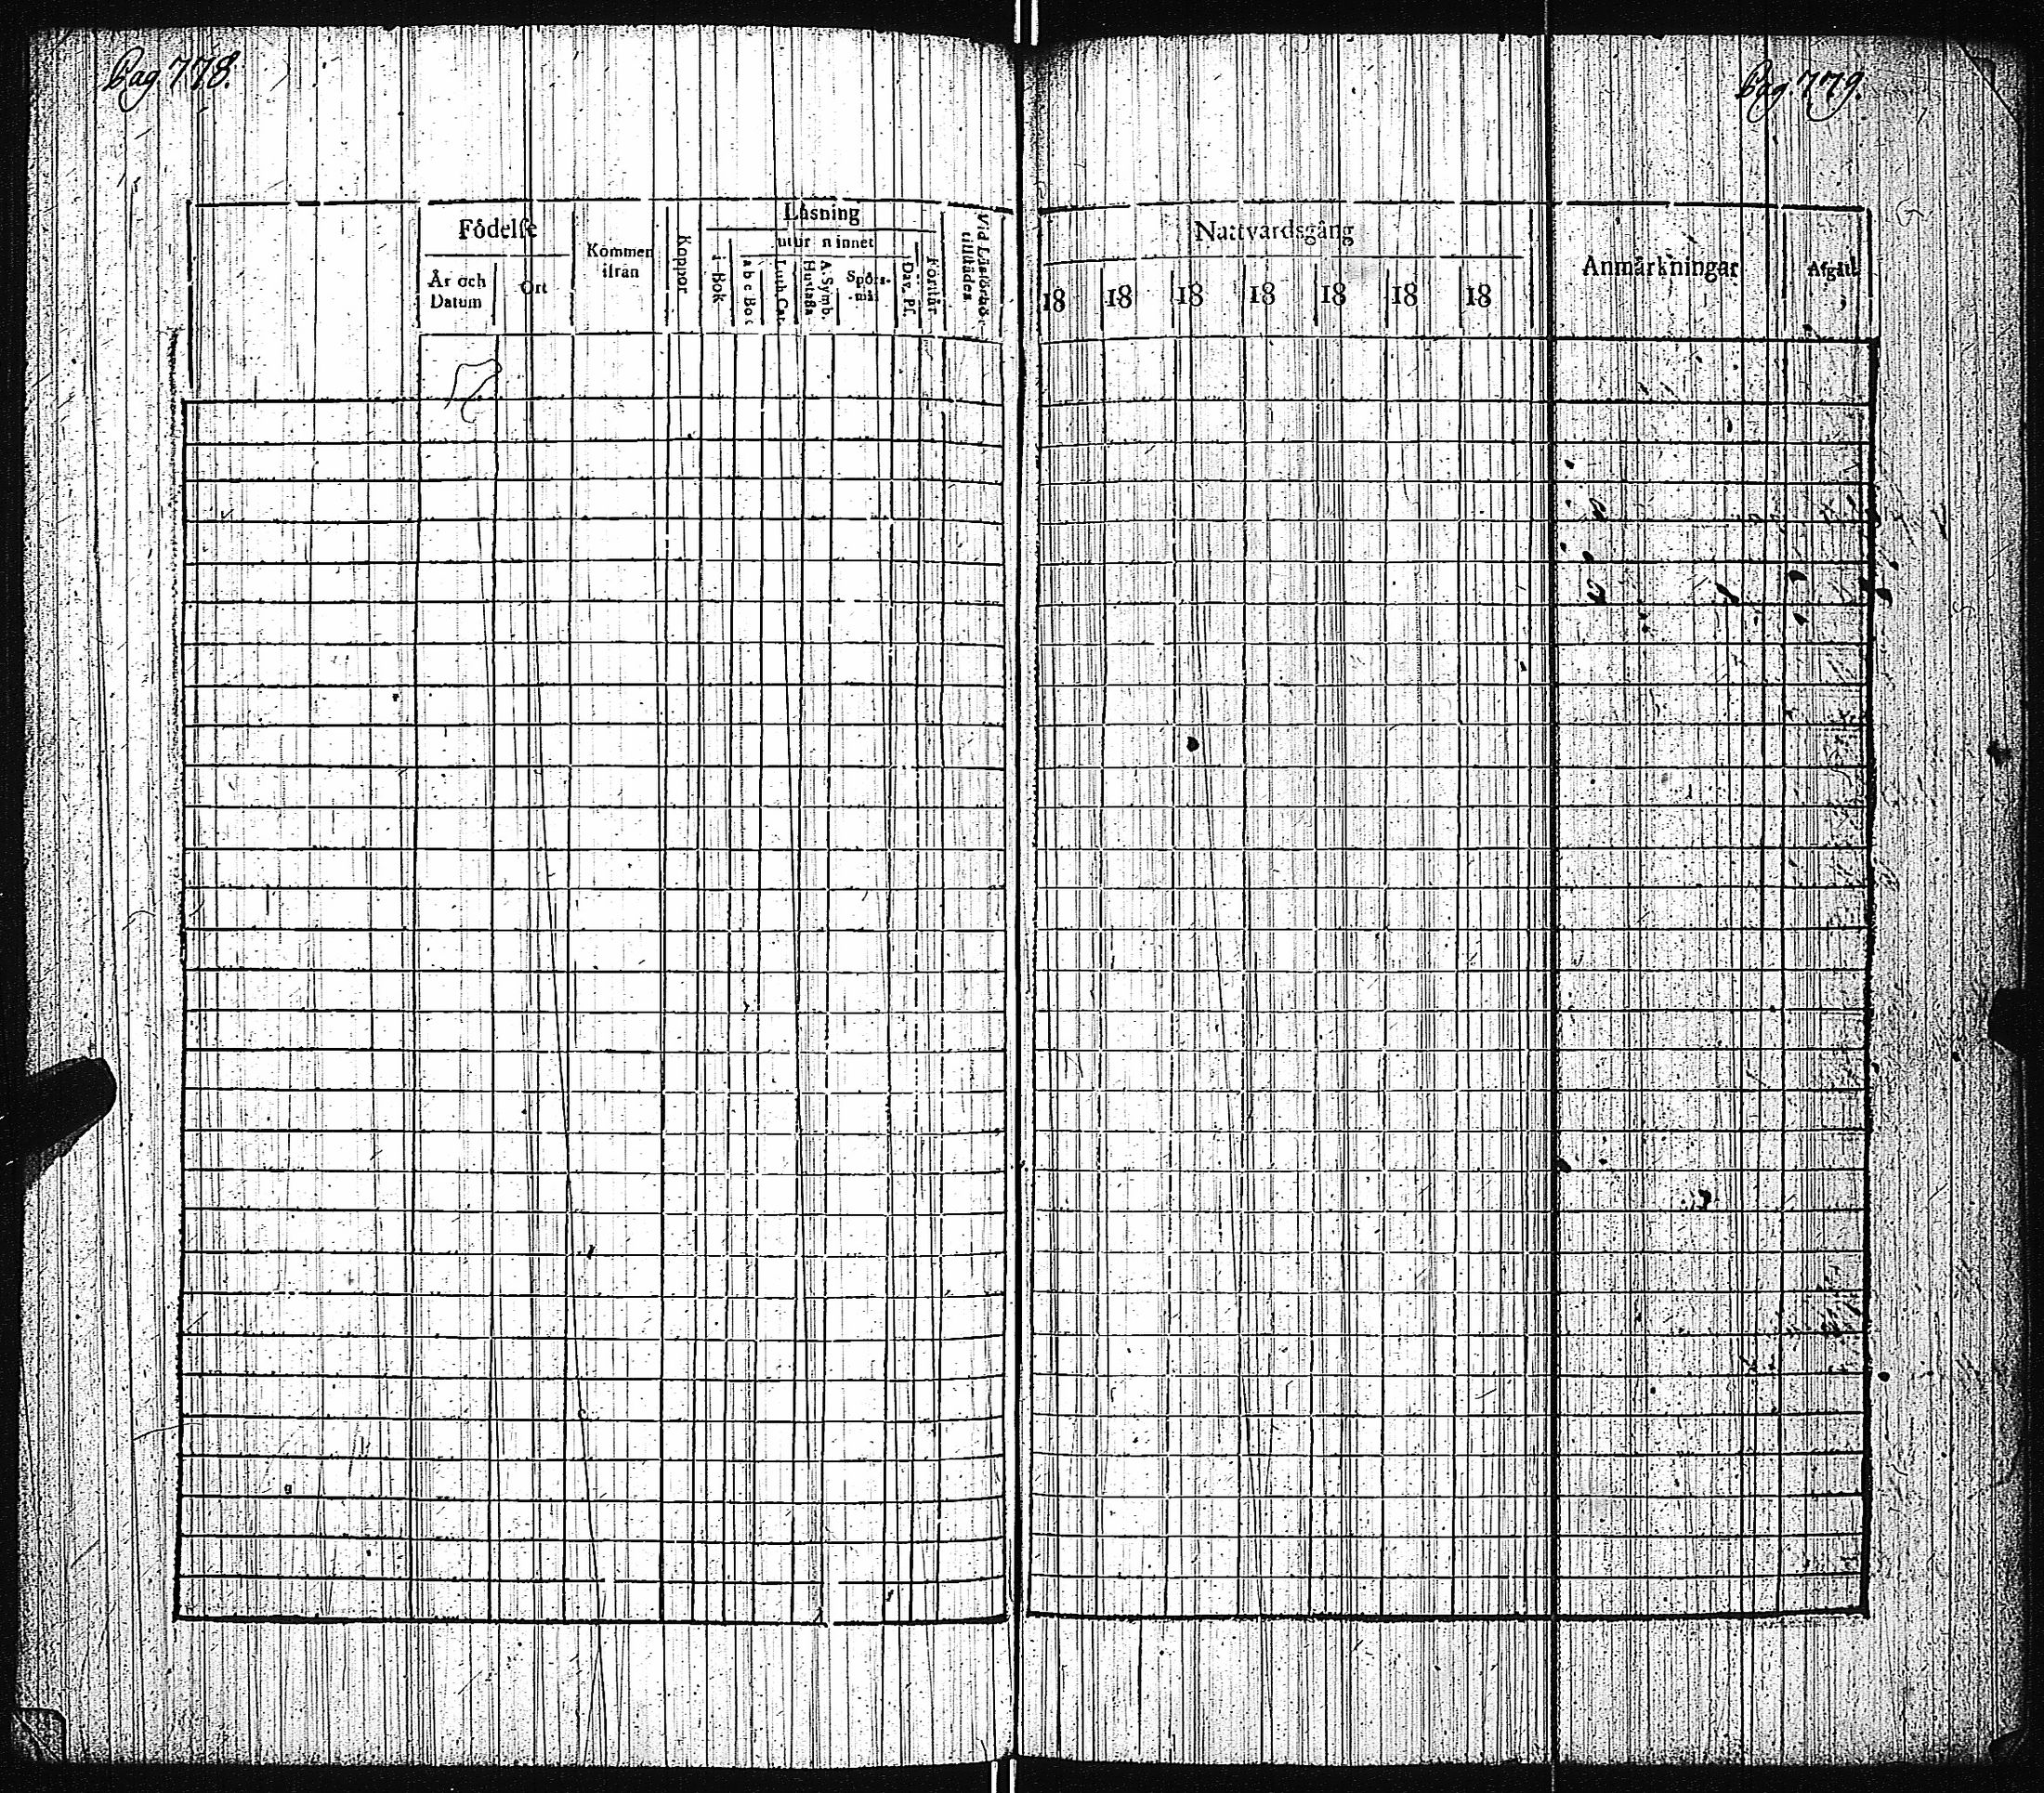 Pag. 778.
Födelse
År och Datum
Ort
Kommen ifrån
Koppor
Läsning
i Bok
utur minnet
a b c Bok
Luth. Cat.
Hustafla
A. Symb.
Spörs-
mål
Dav. Ps.
Förstår
Vid Läsförhör
tillstädes
Pag. 779.
Nattvardsgång
18 18 18 18 18 18 18
Anmärkningar
Afgått